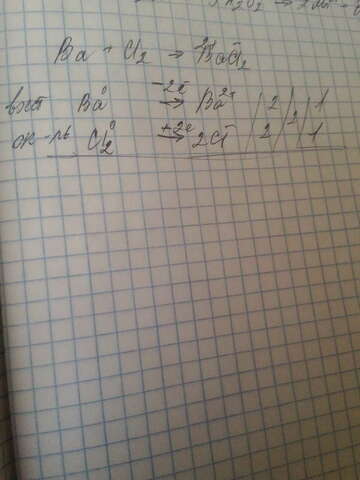 H₂O₂ → 2
Ba + Cl₂ → Ba⁺²Cl⁻₂
восст Ba⁰ −2e̅ → Ba²⁺ | 2 | 2 | 1
ок-ль Cl₂⁰ +2e̅ → 2Cl⁻ | 2 | 1